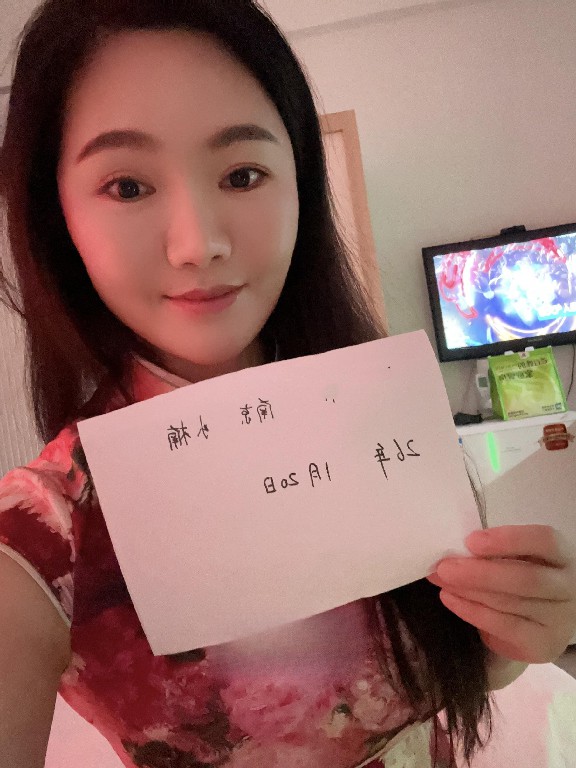 南京 小楠
26年 1月20日